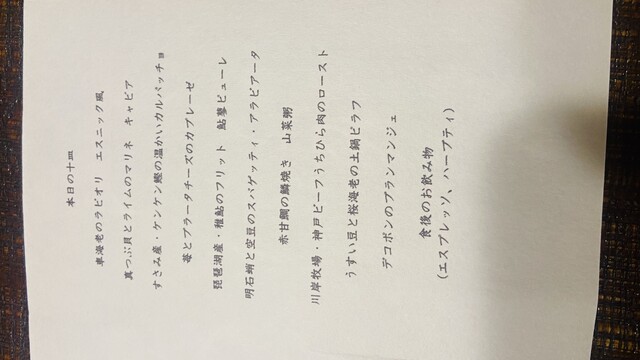 本日の十皿
車海老のラビオリ　エスニック風
真つぶ貝とライムのマリネ　キャビア
すさみ産・ケンケン鰹の温かいカルパッチョ
苺とブラータチーズのカプレーゼ
琵琶湖産・稚鮎のフリット　鮎蓼ピューレ
明石蛸と空豆のスパゲッティ・アラビアータ
赤甘鯛の鱗焼き　山菜粥
川岸牧場・神戸ビーフうちひら肉のロースト
うすい豆と桜海老の土鍋ピラフ
デコポンのブランマンジェ
食後のお飲み物
(エスプレッソ、ハーブティ)